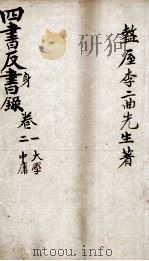 盩厔李二曲先生著
四書反書錄
身
卷一 大學
二 中庸